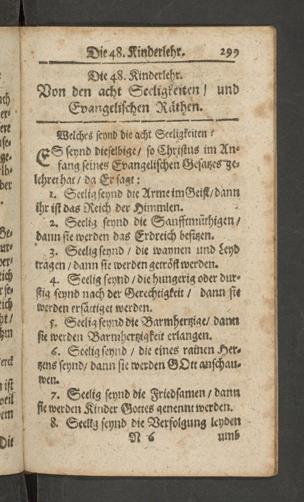 Die 48. Kinderlehr. 299
Die 48. Kinderlehr.
Von den acht Seeligkeiten / und
Evangelischen Räthen.
Welches seynd die acht Seeligkeiten?
ES seynd dieselbige / so Christus im An-
fang seines Evangelischen Gesatzes ge-
lehret hat / da Er sagt:
1. Seelig seynd die Arme im Geist / dann
ihr ist das Reich der Himmlen.
2. Seelig seynd die Sanfftmüthigen /
dann sie werden das Erdreich besitzen.
3. Seelig seynd / die waynen und Leyd
tragen / dann sie werden getröst werden.
4. Seelig seynd / die hungerig oder dur-
stig seynd nach der Gerechtigkeit / dann sie
werden ersättiget werden.
5. Seelig seynd die Barmhertzige / dann
sie werden Barmhertzigkeit erlangen.
6. Seelig seynd / die eines rainen Her-
tzens seynd / dann sie werden GOtt anschau-
wen.
7. Seelig seynd die Friedsamen / dann
sie werden Kinder Gottes genennt werden.
8. Seelig seynd die Verfolgung leyden
N 6 umb